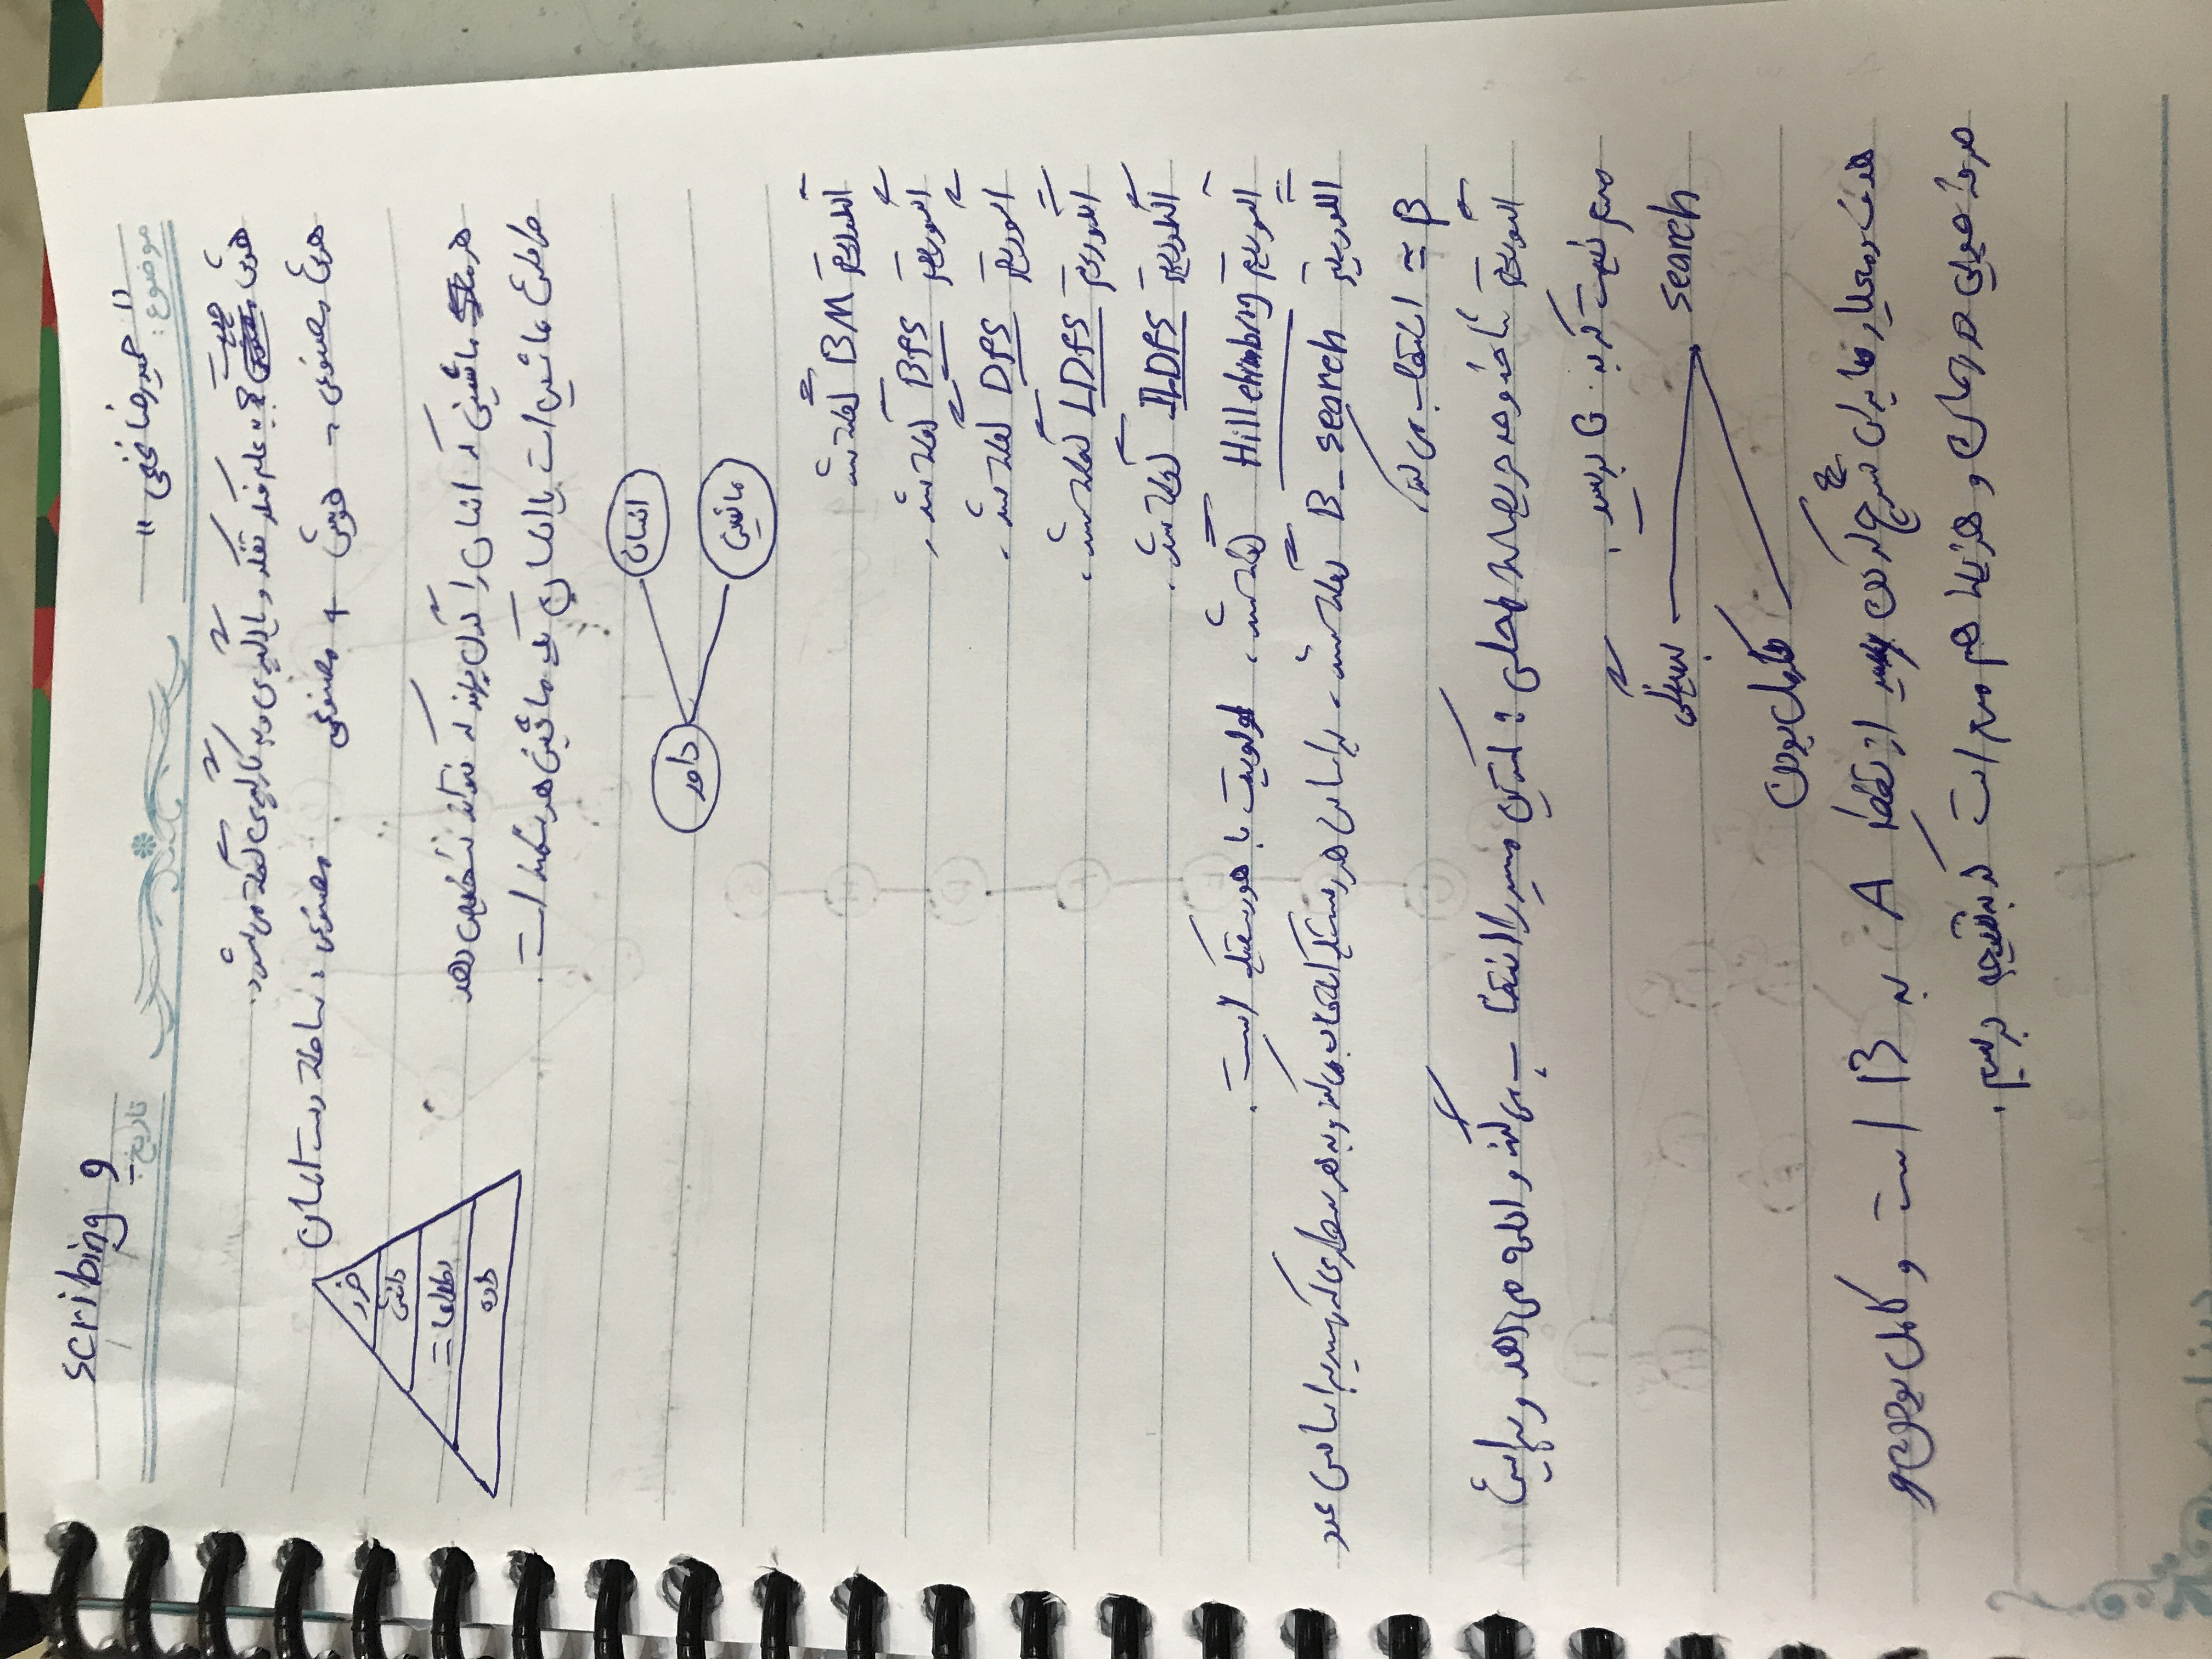 و scribing
موضوع: " حمیدرضا نخعی "
تاریخ: / /
هوش چیست ؟ به علم فکر تفکر و یادگیری و به کارگیری گفته می‌شود.
هوش مصنوعی = هوش + مصنوعی . مصنوعی : ساخته دست انسان
خرد
دانش
اطلاعات
داده
هر ماشینی که انسان را گول بزند که نتواند تشخیص دهد
طرفش ماشین است یا انسان یک ماشین هوشمند است.
انسان
داور
ماشین
الگوریتم BM گفته شد
الگوریتم BFS گفته شد.
الگوریتم DFS گفته شد.
الگوریتم LDFS گفته شد.
الگوریتم ILDFS گفته شد.
الگوریتم Hillclimbing گفته شد، اولویت با هورستیک است.
الگوریتم B_search گفته شد، براساس هورستیک انتخاب می‌کند و به هر سطری که رسید براساس عدد
β = انتخاب می‌کند
الگوریتم شاخه و حد حریصانه محلی : کمترین مسیر را انتخاب می‌کند و ادامه می‌دهد و برایش
مهم نیست که به G برسد.
search
بهینگی
کامل بودن
هدف و معیار ما برای سرچ کردن رسید از نقطه A به B است و کامل بودن و
صرفه جویی در زمان و هزینه هم مهم است که به نتیجه برسیم.